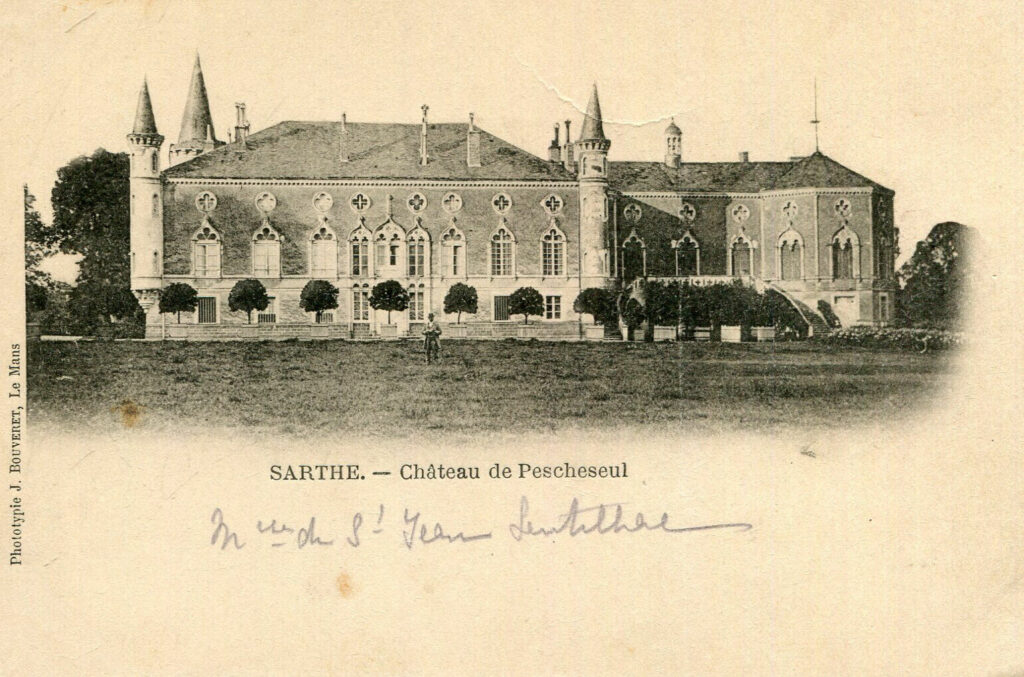 Phototypie J. BOUVERET, Le Mans
SARTHE. — Château de Pescheseul
de St Jean